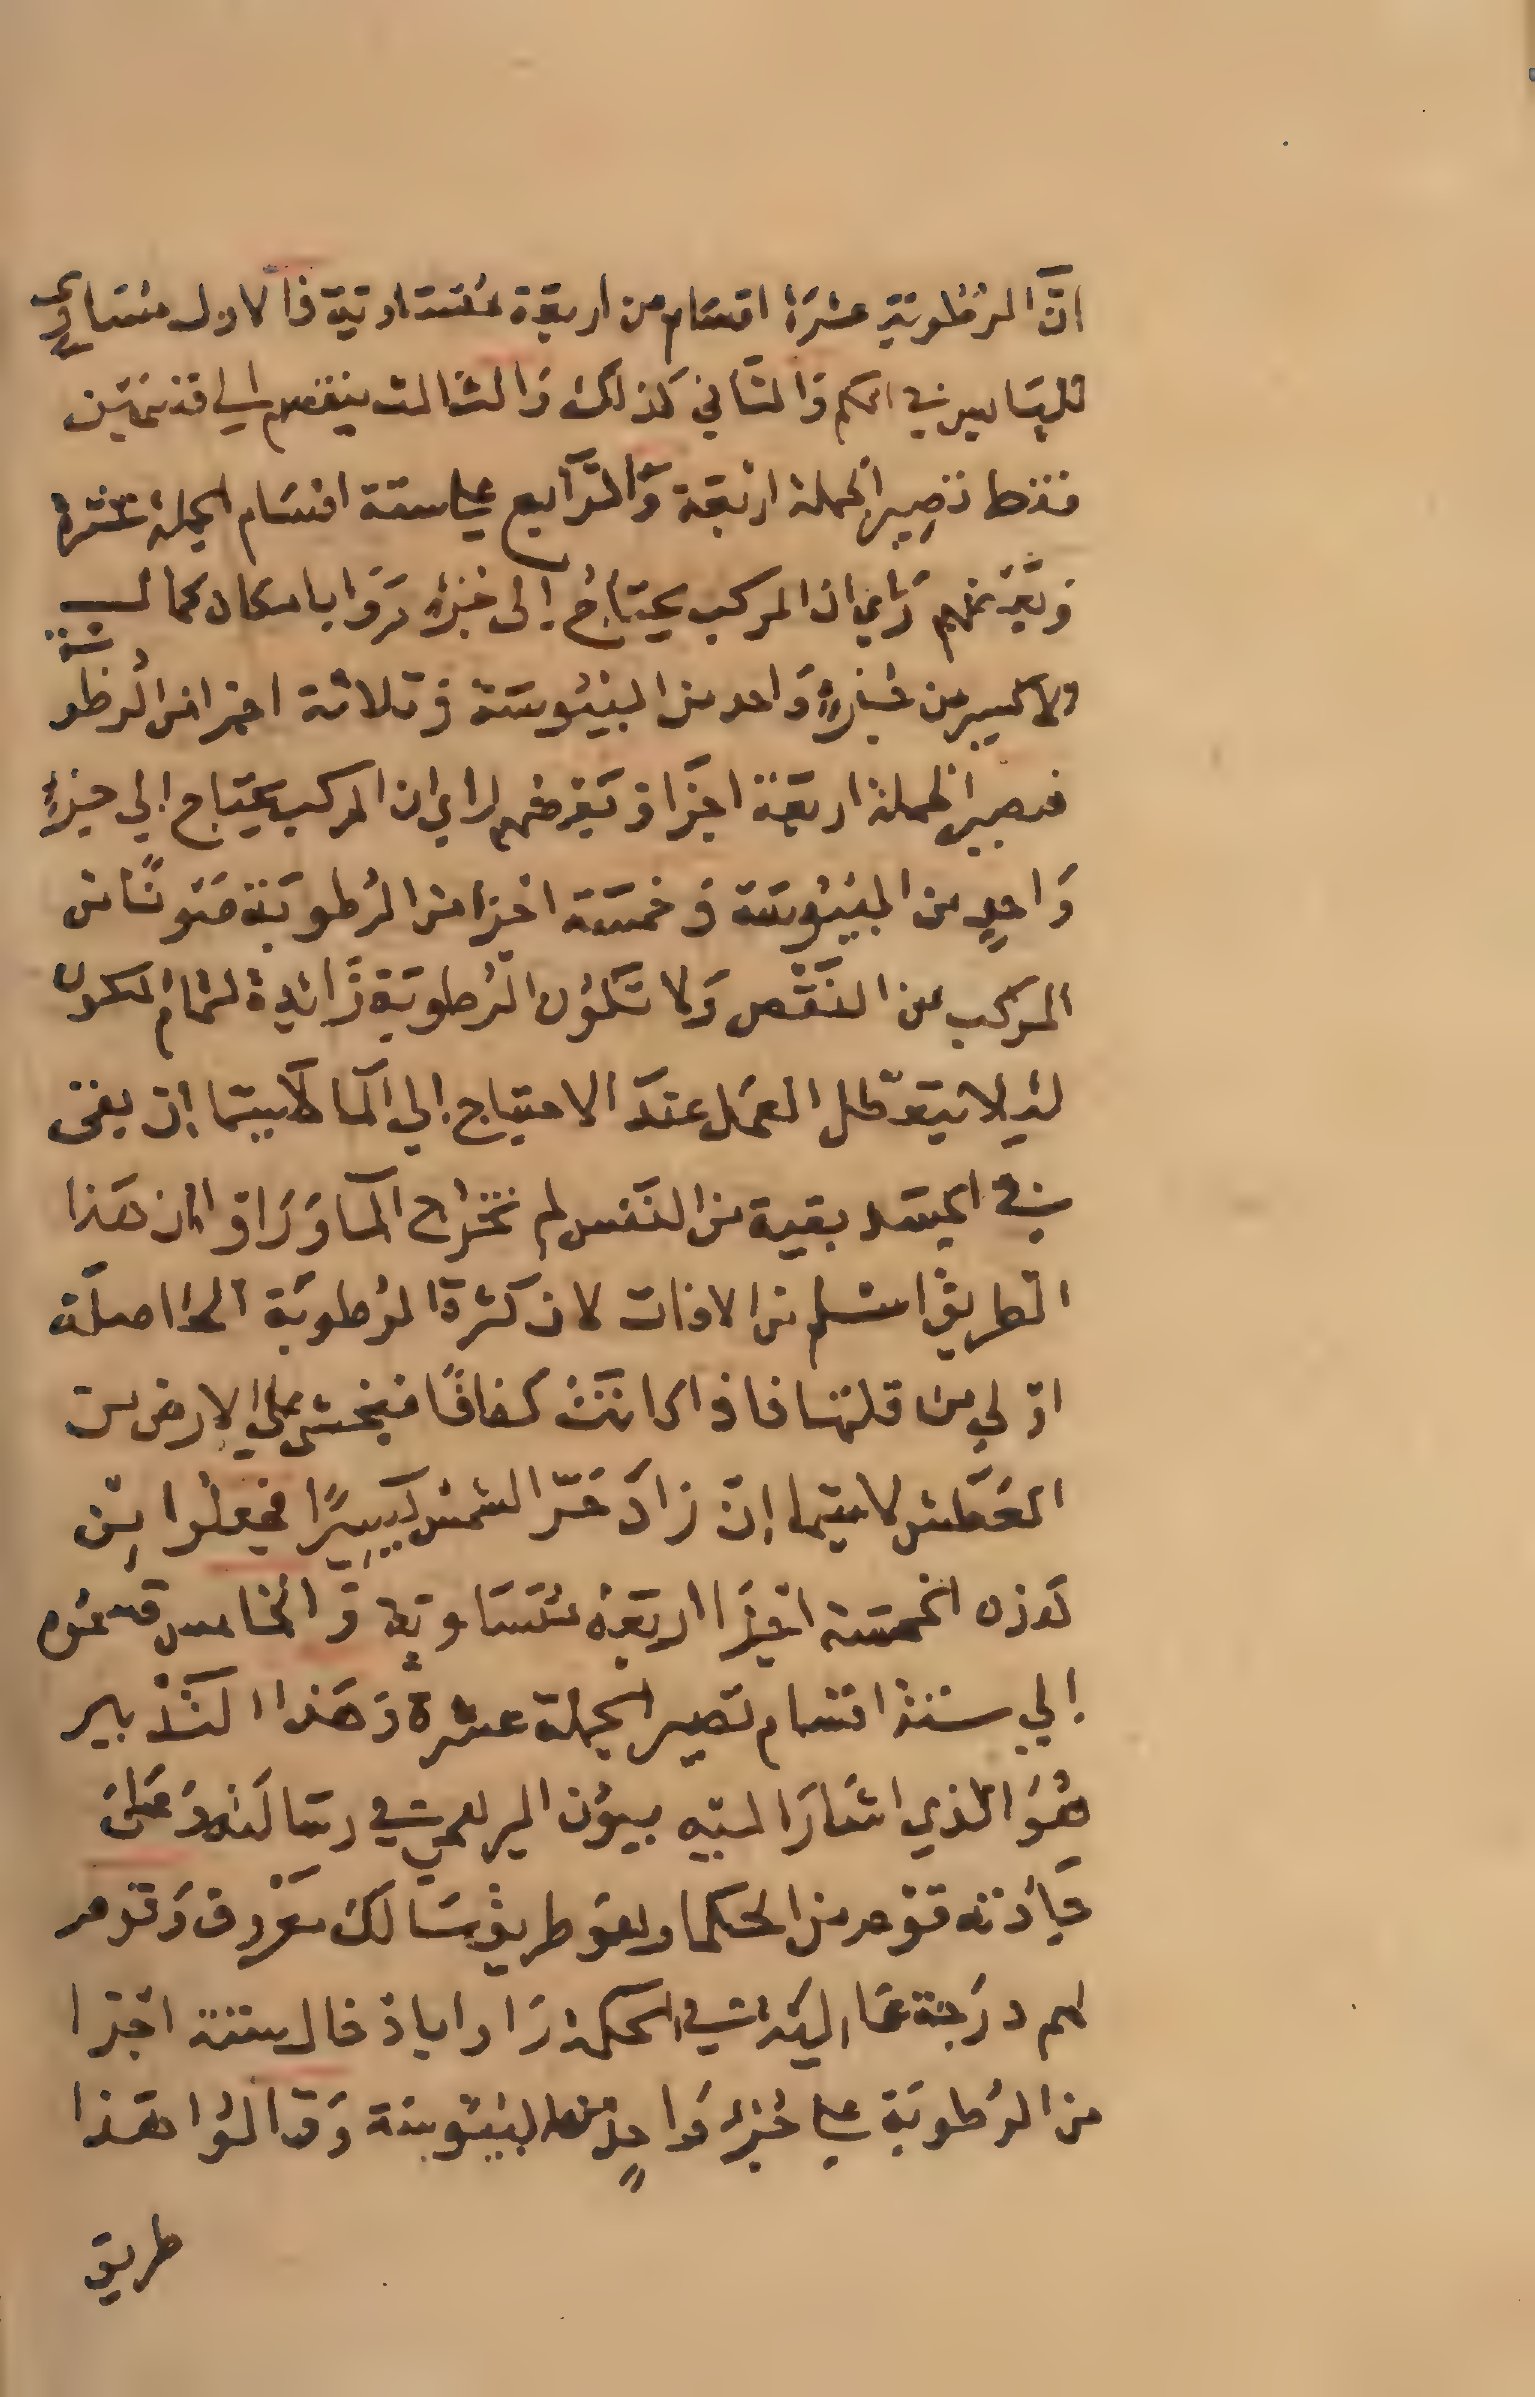 انّ الرُطُوبة عشرَة اقسَام من اربعَة مُتسَاوية فالاول مُسَاوي
لليَابس في الحكم وَالثاني كذلك وَالثالث ينقسم الي قسمَين
فقط تصِير الجملة اربَعة وَالرَّابع علي ستة اقسَام الجملة عشرة
وَبَعْضهم رَأي ان المركب يحتاجُ إلى جُزءٍ
الاكسير من جُزءٍ وَاحد من اليبُوسَة وَثلاثة اجزا من الرُطُوبَة
فتصير الجملة اربَعَة اجزَا وَبَعضهم راي ان المركب يحتَاج إلي جزءٍ
وَاحدٍ من اليبُوسَة وَخمسَة اجزا من الرُطوبَة صَونًا من
المركب عن النَقص وَلا تكُون الرُطوبَة زَائدة لتمَام الكون
لئلا يتعَطل العمَل عندَ الاحتياج إلي المَا لاسِيّما إن بقى
في الجسَد بقية من النفس لم تخرُج المَا وَرَاوا ان هَذا
الطريق اسلم من الافات لان كثرة الرُطوبَة الحَاصلَة
اوْلي من قلتها فاذا كانَتْ كفافًا فيخشى علي الارض من
العَطش لاسِيّما إن زادَ حَرّ الشمس يسِيرًا فجعلُوا مِن
هَذه الخمسَة اجزَا اربعَة مُتسَاوية وَالخامس قسمُوه
إلي ستة اقسَام تصير الجملة عشرة وَهَذا التَدْبير
هُوَ الذي اشَارَ اليه بيُون البرهمي في رسَالته وَعَلىَ
جَادته قوْم من الحكما وهو طريق سَالك معرُوف وَقوْم
لهم درَجة عَاليَة في الحكمة رَاوا بادْخال ستة اجْزا
من الرُطوبَة علي جُزءٍ وَاحدٍ من اليبُوسَة وَقالوُا هَذا
طريق